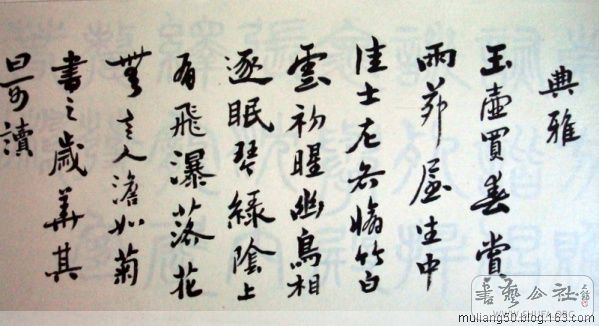 典雅
玉壺買春賞
雨茆屋坐中
佳士左右脩竹白
雲初晴幽鳥相
逐眠琴綠陰上
有飛瀑落花
無言人澹如菊
書之歲華其
曰可讀
書藝公社
muliang50.blog.163.com